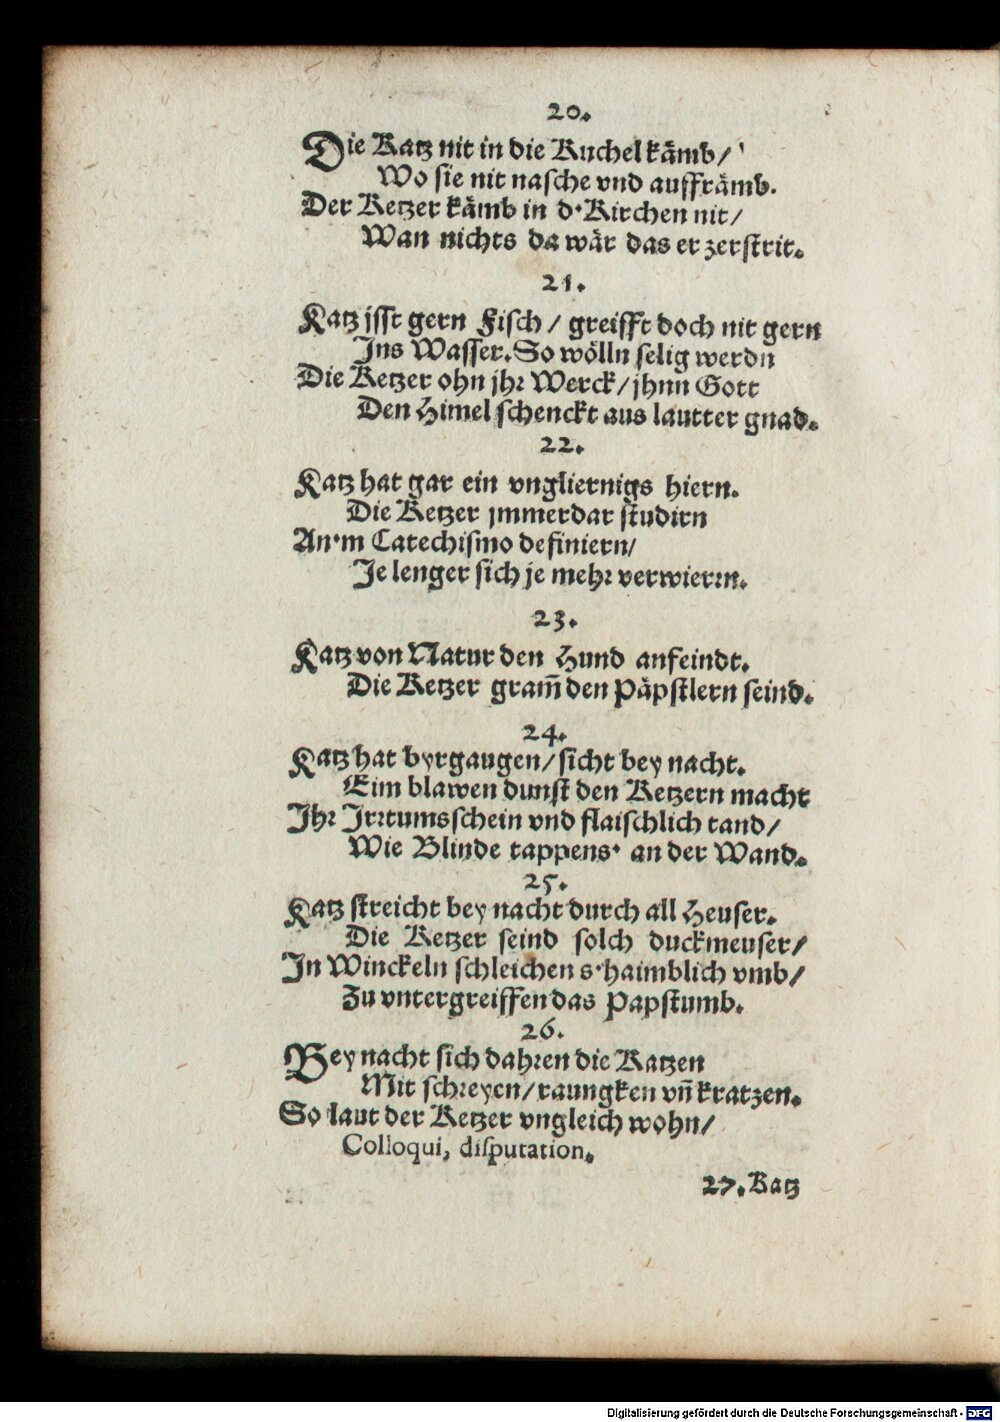 20.
Die Katz nit in die Kuchel kämb/
Wo sie nit nasche vnd auffrämb.
Der Ketzer kämb in d' Kirchen nit/
Wan nichts da wär das er zerstrit.
21.
Katz jsst gern Fisch / greifft doch nit gern
Ins Wasser. So wölln selig werdn
Die Ketzer ohn jhr Werck/ jhnn Gott
Den Himel schenckt aus lautter gnad.
22.
Katz hat gar ein vngliernigs hiern.
Die Ketzer jmmerdar studirn
An'm Catechismo definiern/
Je lenger sich je mehr verwierrn.
23.
Katz von Natur den Hund anfeindt.
Die Ketzer gram̄ den Päpstlern seind.
24.
Katz hat byrgaugen/ sicht bey nacht.
Eim blawen dunst den Ketzern macht
Ihr Irrtumsschein vnd flaischlich tand/
Wie Blinde tappens' an der Wand.
25.
Katz streicht bey nacht durch all Heuser.
Die Ketzer seind solch duckmeuser/
In Winckeln schleichen s' haimblich vmb/
Zu vntergreiffen das Papstumb.
26.
Bey nacht sich dahren die Katzen
Mit schreyen/ raungken vn̄ kratzen.
So laut der Ketzer vngleich wohn/
Colloqui, disputation.
27. Katz
Digitalisierung gefördert durch die Deutsche Forschungsgemeinschaft - DFG